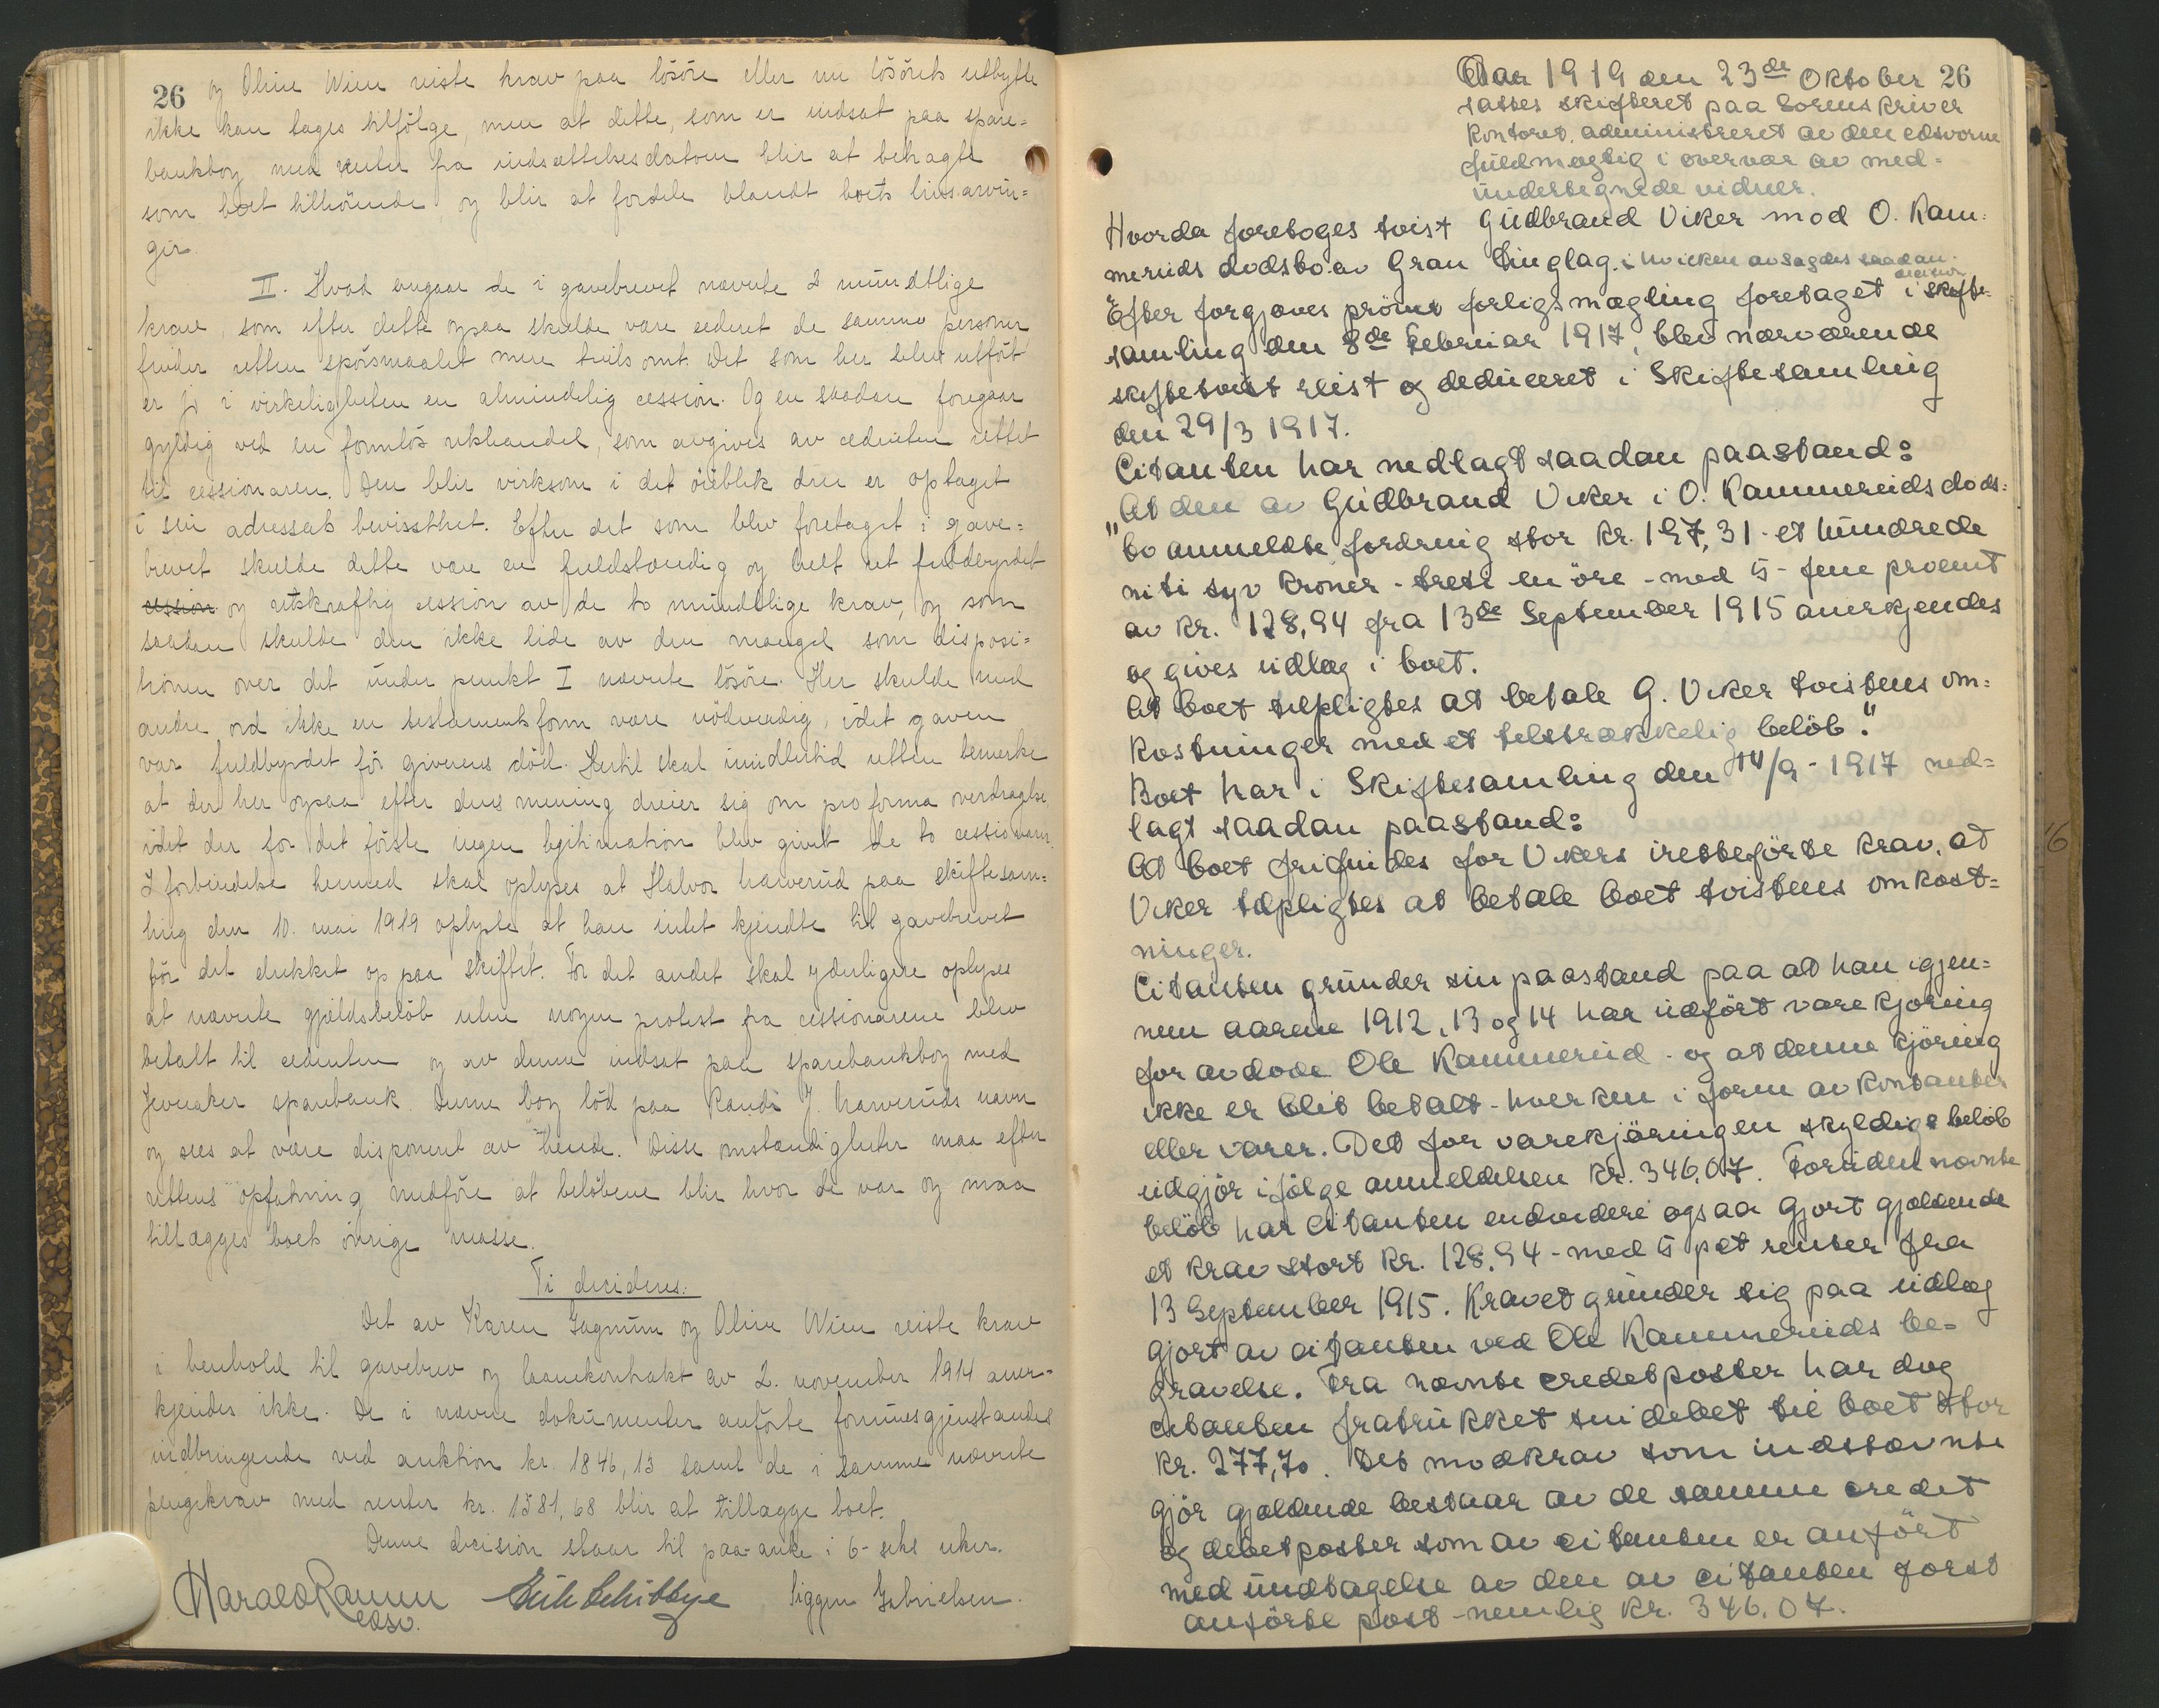 26 og Oline Wien reiste krav paa lösöre eller nu lösörets utbytte
ikke kan tages tilfölge, men at dette, som er indsat paa spare=
bankbog med renter fra indsættelsesdatoen blir at betragte
som boet tilhörende, og blir at fordele blandt boets livsarvin=
ger.
II. Hvad angaar de i gavebrevet nævnte 2 mundtlige
krav, som efter dette ogsaa skulde være cederet de samme personer
finder retten spörsmaalet mere tvilsomt. Det som her blev utfört
er jo i virkeligheten en almindelig cession. Og en saadan foregaar
gyldig ved en formlös rethandel, som avgives av cedenten rettet
til cessionaren. Den blir virksom i det öieblik den er optaget
i sin adressats bevissthet. Efter det som blev foretaget i gave=
brevet skulde dette være en fuldstændig og helt ut fuldbyrdet
cession og retskraftig cession av de to mundtlige krav, og som
saadan skulde den ikke lide av den mangel som disposi=
tionen over det under punkt I nævnte lösöre. Her skulde med
andre ord ikke en testamentsform være nödvendig, idet gaven
var fuldbyrdet för giverens död. Hertil skal imidlertid retten bemerke
at der her ogsaa efter dens mening dreier sig om pro forma overdragelse,
idet der for det förste ingen legitimation blev givet de to cessionarer.
I forbindelse hermed skal oplyses at Halvor Harverud paa skiftesam=
ling den 10. mai 1919 oplyste at han intet kjendte til gavebrevet
för det dukket op paa skiftet. For det andet skal yderligere oplyses
at nævnte gjeldsbelöb uten nogen protest fra cessionarene blev
betalt til cedenten og av denne indsat paa sparebankbog med
Jevnaker sparebank. Denne bog löd paa Randi J. Harveruds navn
og sees at være disponert av hende. Disse omstændigheter maa efter
rettens opfatning medföre at belöbene blir hvor de var og maa
tillægges boets övrige masse.
Ti decideres:
Det av Karen Gagnum og Oline Wien reiste krav
i henhold til gavebrev og laanekontrakt av 2. november 1914 aner=
kjendes ikke. De i nævnte dokumenter anförte formuesgjenstandes
indbringende ved auktion kr. 1846,13 samt de i samme nævnte
pengekrav med renter kr. 1581,68 blir at tillægge boet.
Denne decision staar til paa-anke i 6- seks uker.
Harald Ramm Erik Schibbye Siggen Gabrielsen.
edsv.
Aar 1919 den 23de Oktober 26
sattes skifteret paa Sorenskriver
kontoret, administreret av den edsvorne
fuldmægtig i overvær av med=
undertegnede vidner.
Hvorda foretoges tvist Gudbrand Viker mod O. Kam=
meruds dødsbo av Gran Tinglag. i hvilken avsagdes saadan
decision
Efter forgjæves prövet forligsmægling foretaget i skifte=
samling den 8de Februar 1917, blev nærværende
skiftetvist reist og deduceret i Skiftesamling
den 29/3 1917.
Citanten har nedlagt saadan paastand:
"At den av Gudbrand Viker i O. Kammeruds döds=
bo anmeldte fordring stor kr. 197,31 - et hundrede
nitti syv kroner - tretti en öre - med 5 - fem procent
av kr. 128,94 fra 13de September 1915 anerkjendes
og gives utlæg i boet.
At boet tilpligtes at betale G. Viker tvistens om=
kostninger med et tilstrækkelig belöb."
Boet har i Skiftesamling den 14/9 - 1917 ned=
lagt saadan paastand:
At boet frifindes for Vikers iretteførte krav, at
Viker tilpligtes at betale boet tvistens omkost=
ninger.
Citanten grunder sin paastand paa at han igjen=
nem aarene 1912, 13 og 14 har utfört varekjøring
for avdøde Ole Kammerud - og at denne kjöring
ikke er blit betalt - hverken i form av kontanter
eller varer. Det for varekjöringen skyldige belöb
utgjör ifölge anmeldelsen kr. 346,07. Foruten nævnte
belöb har citanten endvidere ogsaa gjort gjældende
et krav stort kr. 128.94 - med 5 pct renter fra
13 September 1915. Kravet grunder sig paa utlæg
gjort av citanten ved Ole Kammeruds be=
gravelse. Fra nævnte creditposter har dog
citanten fratrukket sin debet til boet stor
kr. 277,70. Det motkrav som indstævnte
gjör gjældende bestaar av de samme credit
og debetposter som av citanten er anfört
med undtagelse av den av citanten först
anförte post - nemlig kr. 346.07.